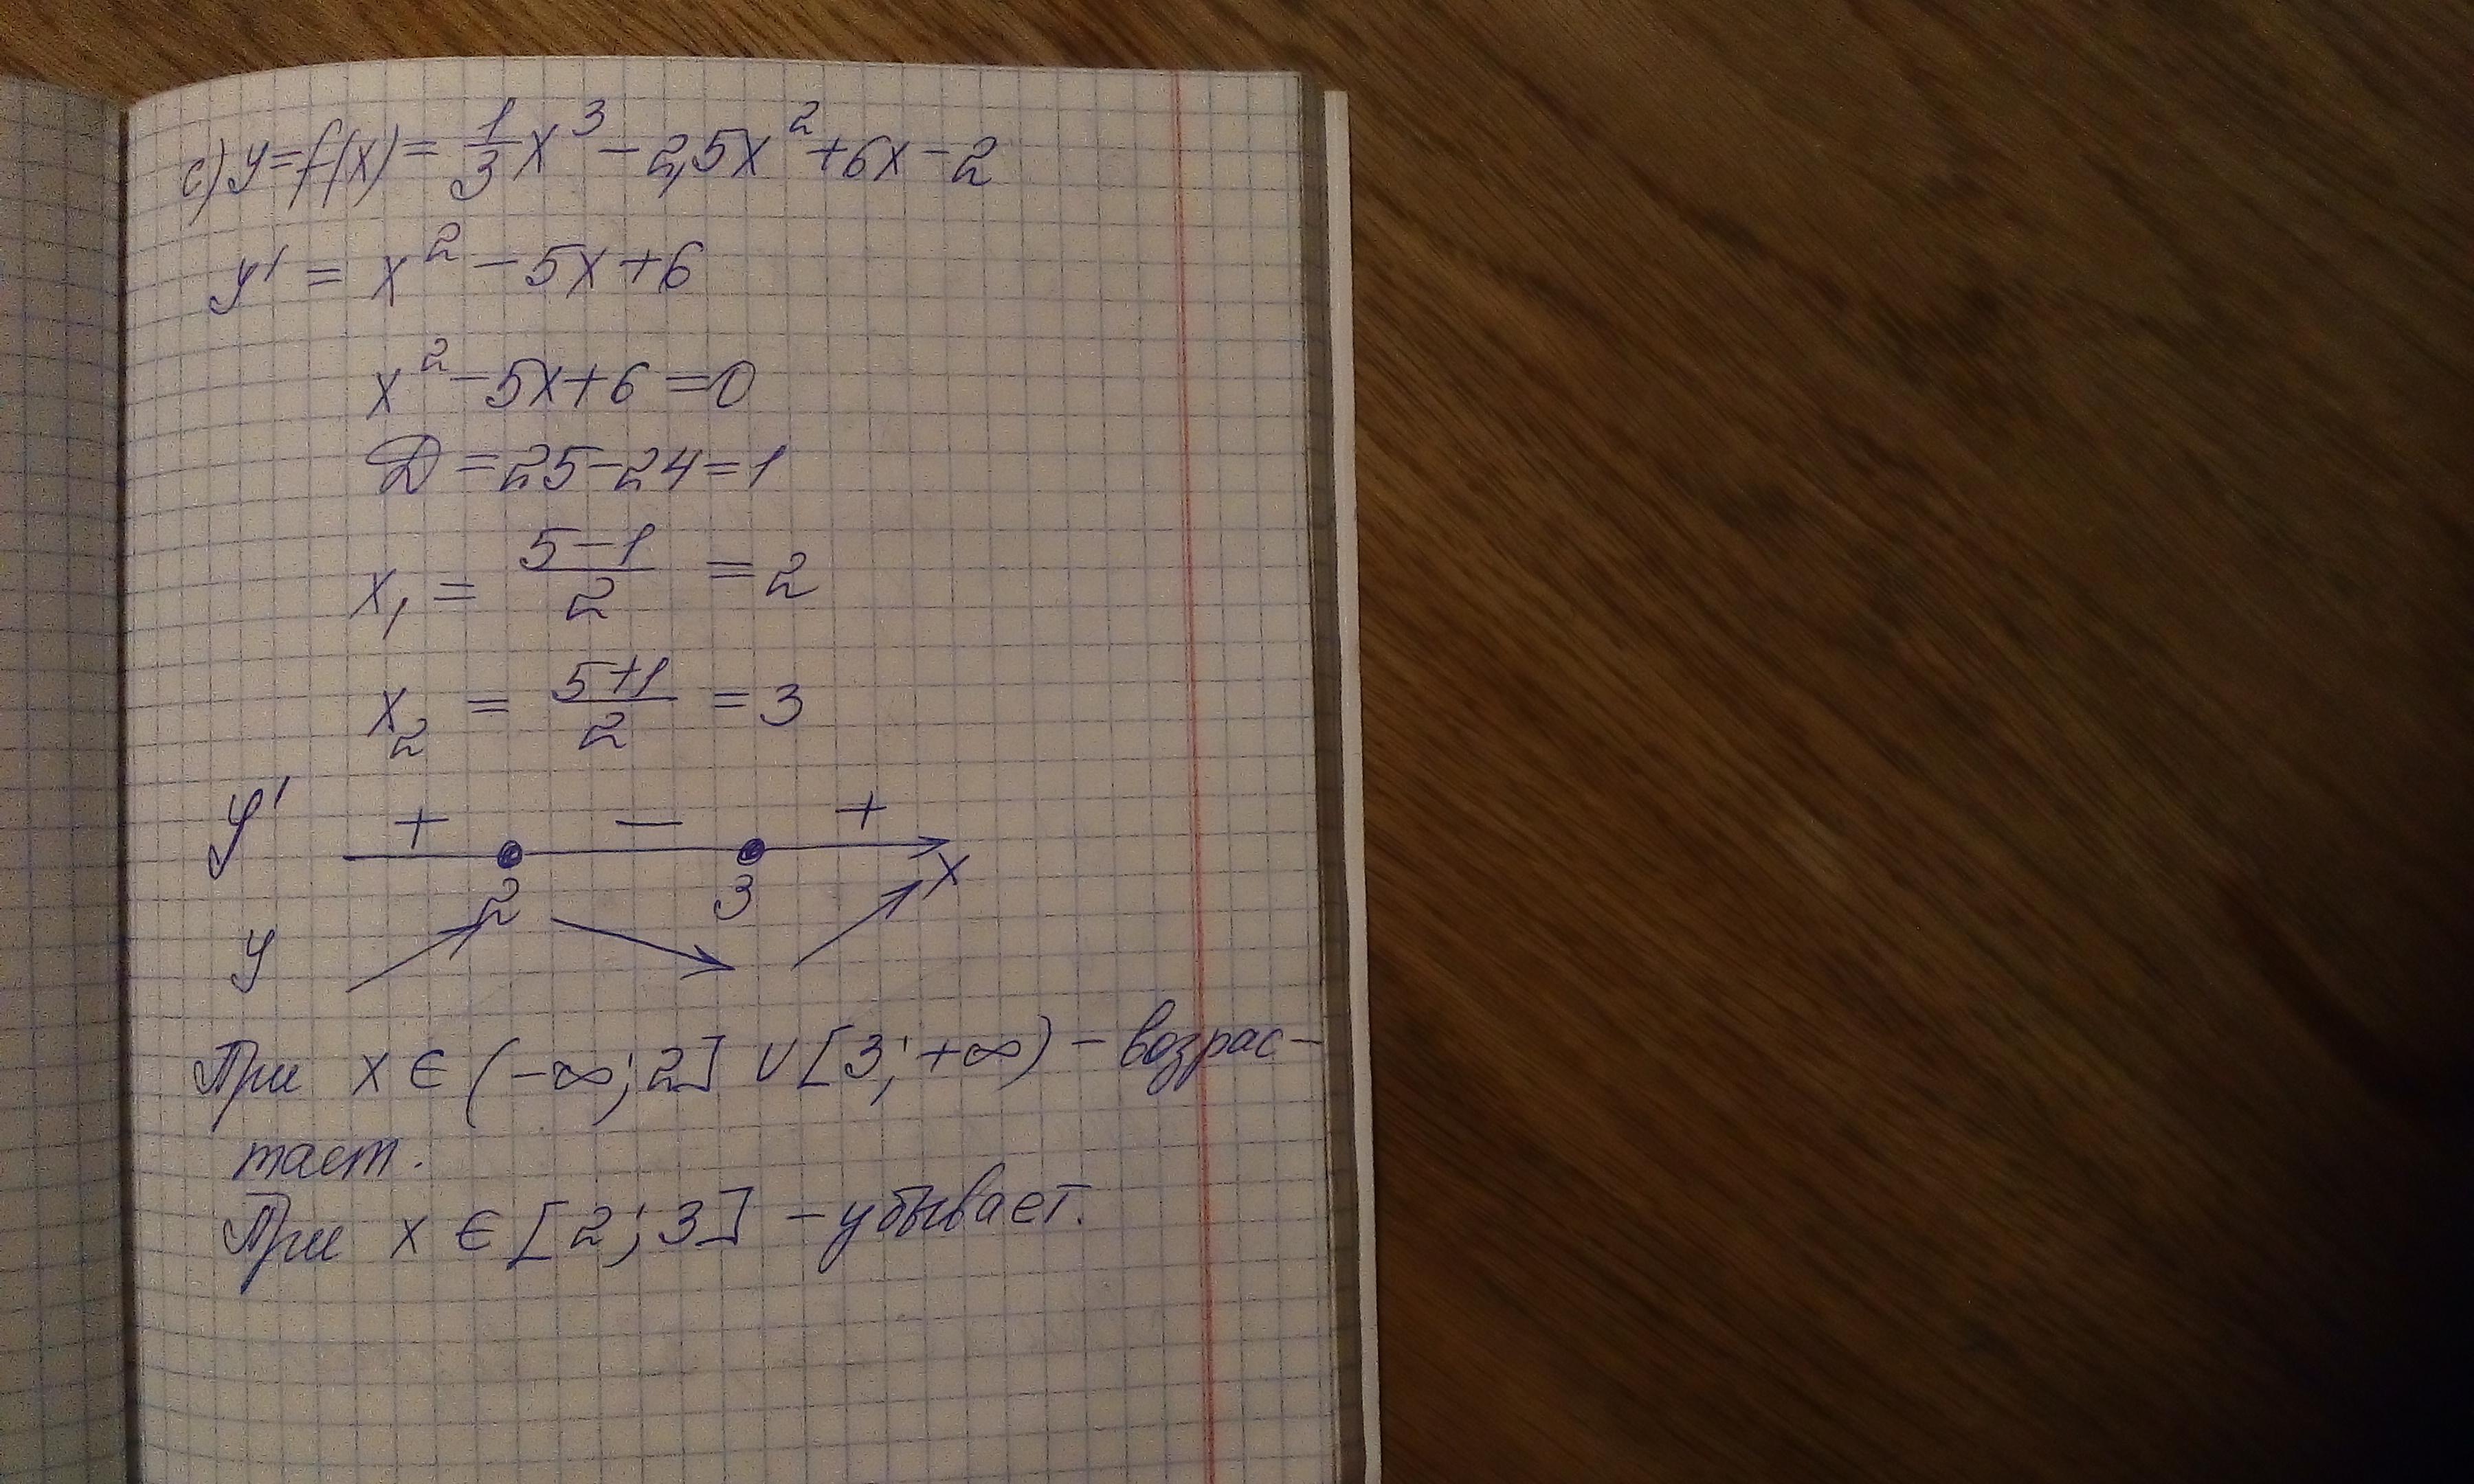 с) y=f(x)= 1/3 x³ – 2,5x² + 6x – 2
y' = x² – 5x + 6
x² – 5x + 6 = 0
D = 25 – 24 = 1
x₁ = (5–1)/2 = 2
x₂ = (5+1)/2 = 3
y' + – +
2 3 x
y
При x ∈ (–∞; 2] ∪ [3; +∞) – возрас-
тает.
При x ∈ [2; 3] – убывает.